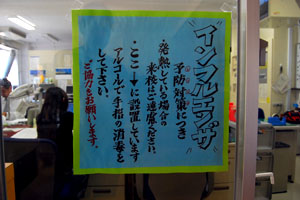 インフルエンザ
予防対策につき
・発熱している場合の
来校はご遠慮ください。
・ここ→に設置しています
アルコールで手指の消毒を
して下さい。
ご協力をお願いします。